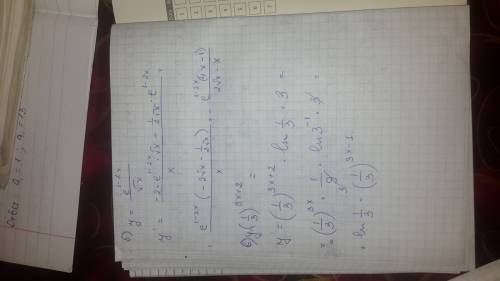 Ответ: a = 1; a = 13
б) y = e^{1-2x} / √x
y' = (-2·e^{1-2x}·√x - 1/(2√x)·e^{1-2x}) / x =
= e^{1-2x}(-2√x - 1/(2√x)) / x = - e^{1-2x}(4x-1) / (2√x·x)
в) y(1/3)^{3x+2} =
y' = (1/3)^{3x+2} · ln 1/3 · 3 =
= (1/3)^{3x} · 1/9 · ln3^{-1} · 3 =
3
· ln 1/3 · (1/3)^{3x·1}